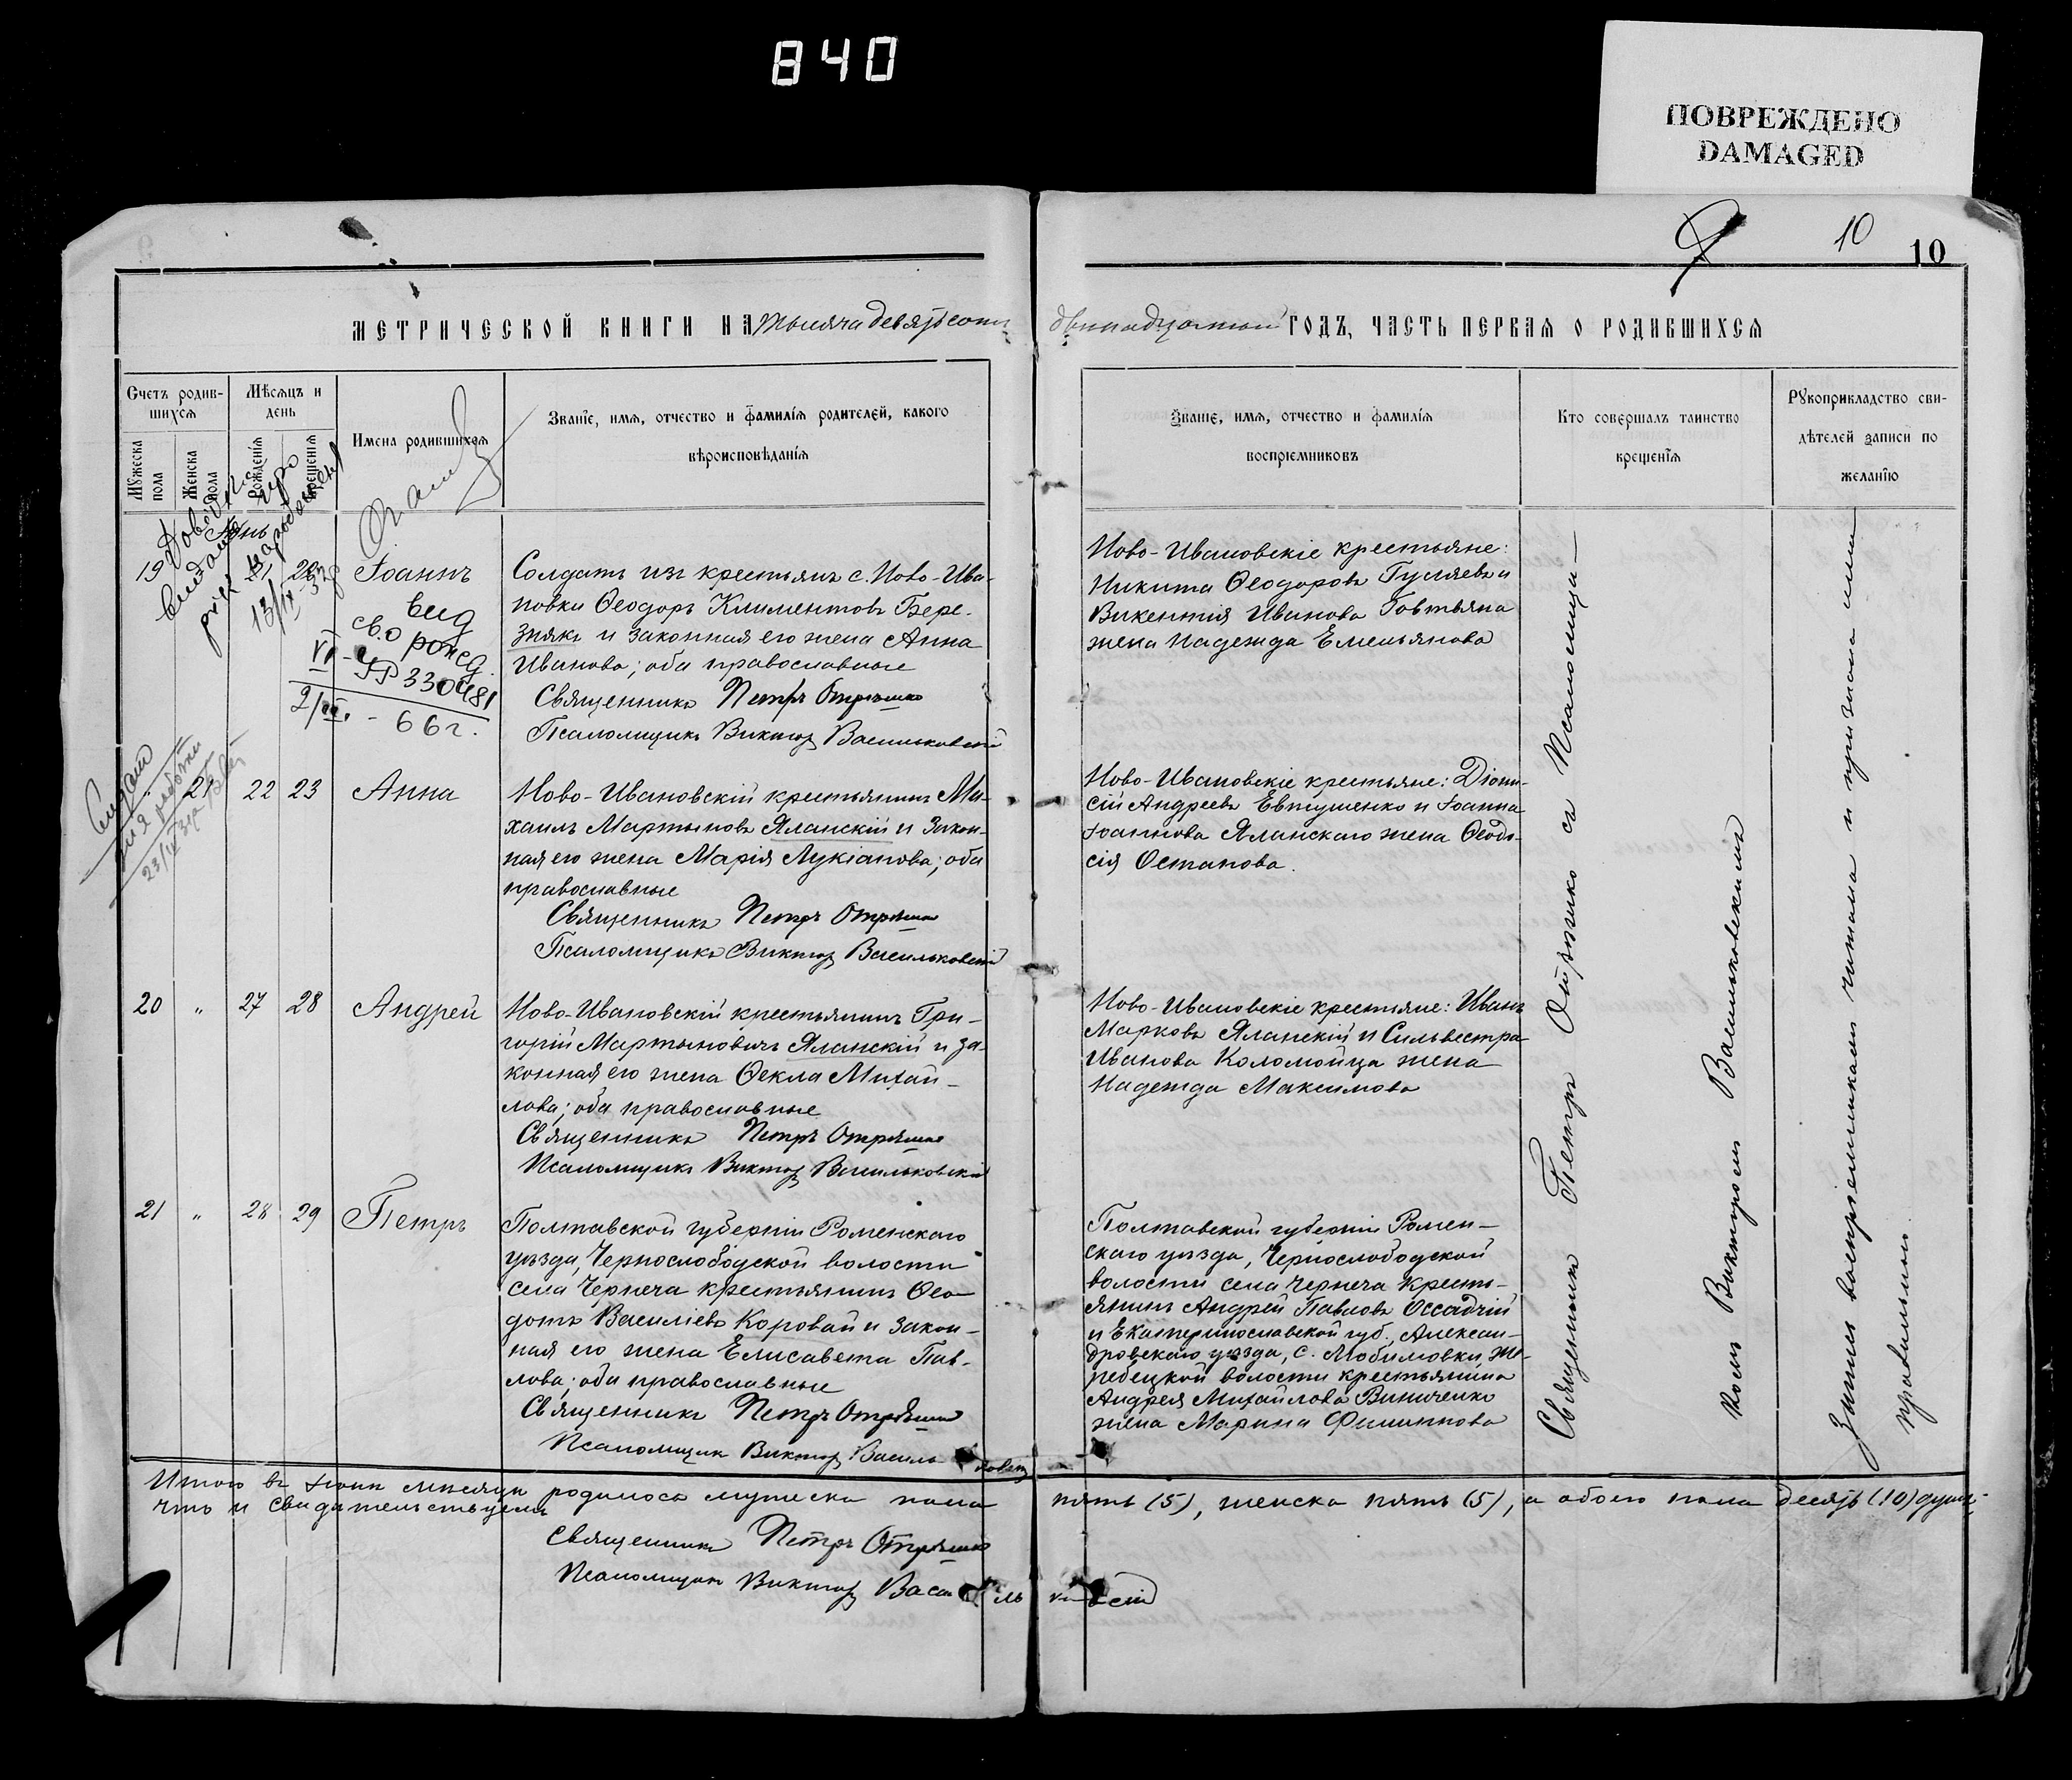 840
ПОВРЕЖДЕНО
DAMAGED
10
10
МЕТРИЧЕСКОЙ КНИГИ НА тысяча девятьсотъ двенадцатый ГОДЪ, ЧАСТЬ ПЕРВАЯ О РОДИВШИХСЯ
Счетъ родив-
шихся
Мѣсяцъ и
день
Мужеска
пола
Женска
пола
Рожденія
Крещенія
Имена родившихся
Званіе, имя, отчество и фамилія родителей, какого
вѣроисповѣданія
Званіе, имя, отчество и фамилія
воспріемниковъ
Кто совершалъ таинство
крещенія
Рукоприкладство сви-
дѣтелей записи по
желанію
19
21
Іоаннъ
вид
св.о рожд.
VI-УР 330481
66 г.
Солдатъ изъ крестьянъ с. Ново-Ива-
новки Ѳеодоръ Климентовъ Бере-
знякъ и законная его жена Анна
Иванова; оба православные
Священникъ Петръ Отрѣшко
Псаломщикъ Викторъ Васильковскій
Ново-Ивановскіе крестьяне:
Никита Ѳеодоровъ Гуляевъ и
Викентія Иванова Говтвяна
жена Надежда Емельянова
21 22 23 Анна
Ново-Ивановскій крестьянинъ Ми-
хаилъ Мартыновъ Яланскій и закон-
ная его жена Марія Лукіанова; оба
православные
Священникъ Петръ Отрѣшко
Псаломщикъ Викторъ Васильковскій
Ново-Ивановскіе крестьяне: Діони-
сій Андреевъ Евтушенко и Іоанна
Іоаннова Яланскаго жена Ѳеодо-
сія Остапова.
20 " 27 28 Андрей
Ново-Ивановскій крестьянинъ Гри-
горій Мартыновичъ Яланскій и за-
конная его жена Ѳекла Михай-
лова; оба православные
Священникъ Петръ Отрѣшко
Псаломщикъ Викторъ Васильковскій
Ново-Ивановскіе крестьяне: Иванъ
Марковъ Яланскій и Сильвестра
Иванова Коломойца жена
Надежда Максимова
21 " 28 29 Петръ
Полтавской губерніи Роменскаго
уѣзда, Чернослободской волости
села Чернеча крестьянинъ Ѳео-
дотъ Василіевъ Коровай и закон-
ная его жена Елисавета Пав-
лова; оба православные
Священникъ Петръ Отрѣшко
Псаломщик Викторъ Васильковскій
Полтавской губерніи Ромен-
скаго уѣзда, Чернослободской
волости села Чернеча кресть-
янинъ Андрей Павловъ Оссадчій
и Екатеринославской губ., Алексан-
дровскаго уѣзда, с. Любимовки, Же-
ребецкой волости крестьянина
Андрея Михайлова Виниченко
жена Марина Филиппова
Священникъ Петръ Отрѣшко съ Псаломщи-
комъ Викторомъ Васильковскимъ
Запись воспріемниками читана и признана ими
правильною.
Итого въ Іюнѣ мѣсяцѣ родилось мужеска пола пять (5), женска пять (5), а обоего пола десять (10) душъ,
что и свидѣтельствуемъ
Священникъ Петръ Отрѣшко
Псаломщикъ Викторъ Васильковскій